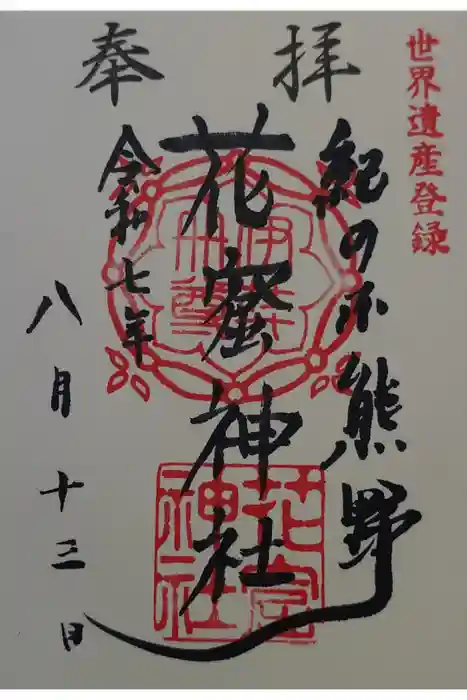 世界遺産登録
奉拝
紀の 熊野
花窟神社
令和七年
八月十三日
伊弉
冊尊
花窟
神社